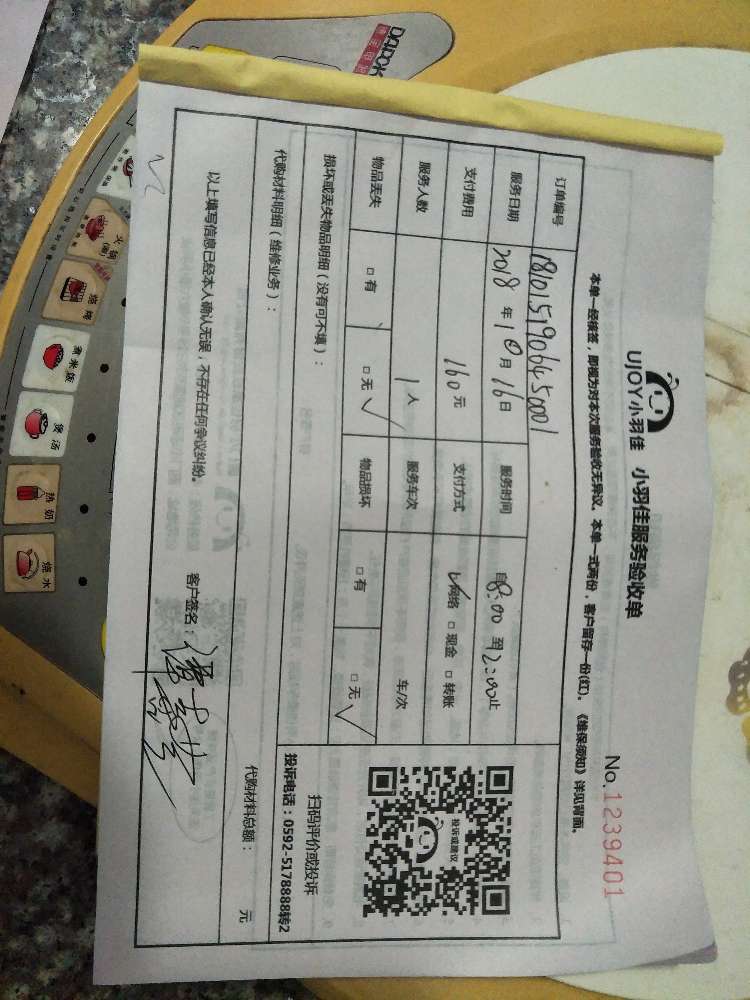 UJOY小羽佳 小羽佳服务验收单
No.1239401
本单一经核签，即视为对本次服务验收无异议。本单一式两份，客户留存一份(红)。《维保须知》详见背面。
订单编号 1810151906450001
服务日期 2018 年 10 月 16 日 服务时间 自 8:00 至 12:00 止
支付费用 160 元 支付方式 ☑网络 □现金 □转账
服务人数 1 人 服务车次 车/次
物品丢失 □有 □无 √ 物品损坏 □有 □无 √
损坏或丢失物品明细（没有可不填）：
代购材料明细（维修业务）：
代购材料总额： 元
以上填写信息已经本人确认无误，不存在任何争议纠纷。
客户签名：
投诉或建议
扫码评价或投诉
投诉电话：0592-5178888转2
火锅
烧烤
煮米饭
煲汤
热奶
烧水